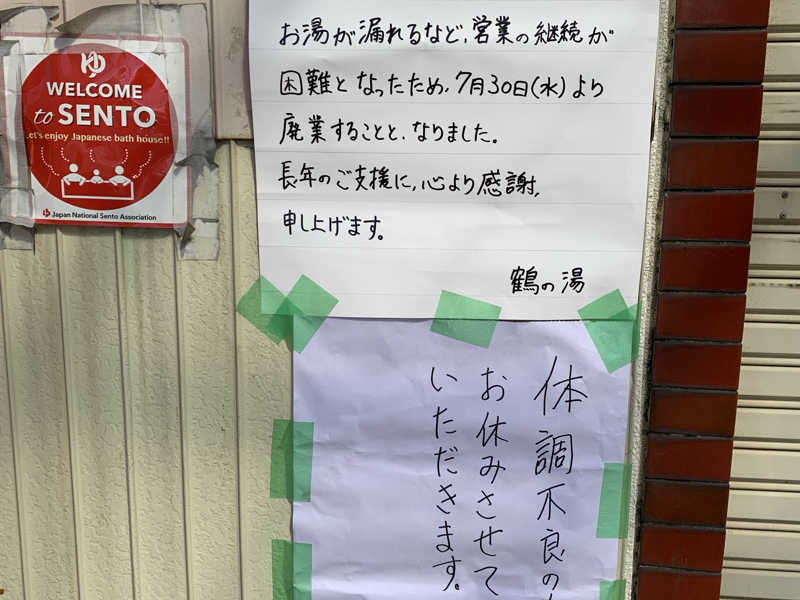 WELCOME
to SENTO
Let's enjoy Japanese bath house!!
Japan National Sento Association
お湯が漏れるなど、営業の継続が
困難となったため、7月30日(水)より
廃業することと、なりました。
長年のご支援に、心より感謝、
申し上げます。
鶴の湯
体調不良の
お休みさせて
いただきます。